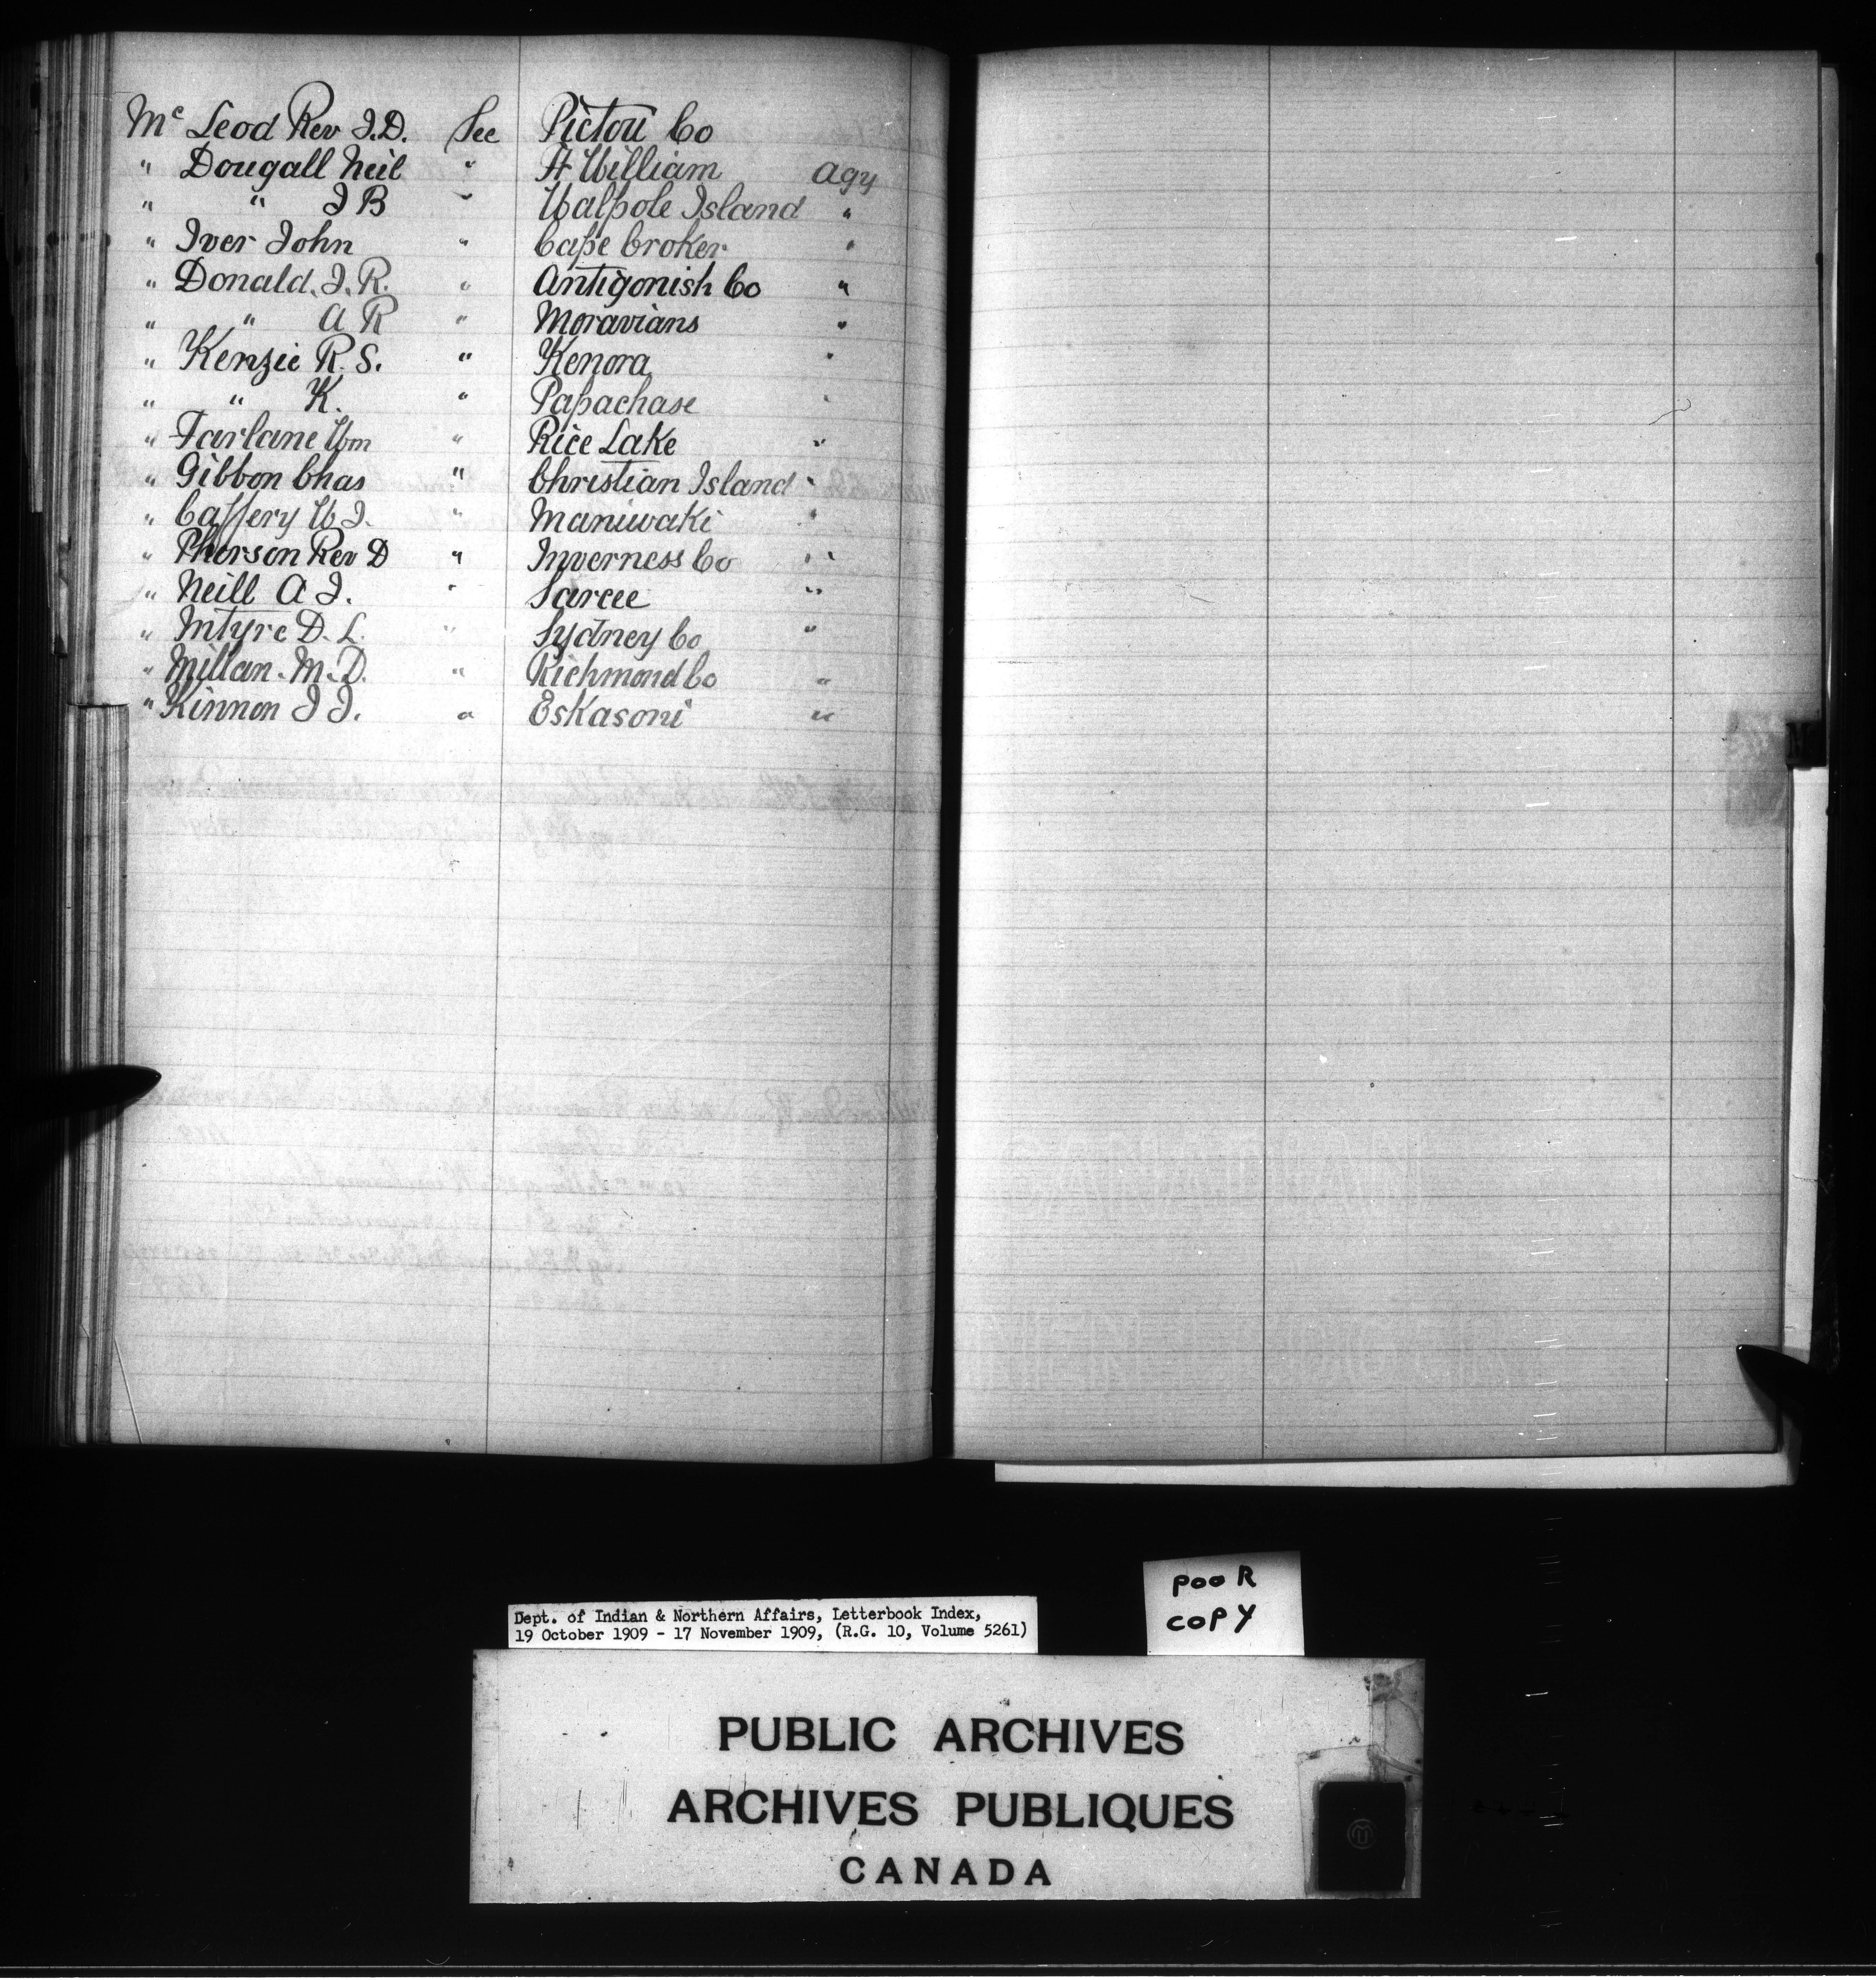 Mc Leod Rev J.D. See Pictou Co
" Dougall Neil " Ft William Agy
" " J B " Walpole Island "
" Iver John " Cape Croker "
" Donald. J. R. " Antigonish Co "
" " A R " Moravians "
" Kenzie R. S. " Kenora "
" " K. " Papachase "
" Farlane Wm " Rice Lake "
" Gibbon Chas " Christian Island "
" Caffery W J. " Maniwaki "
" Pherson Rev D " Inverness Co "
" Neill A J. " Sarcee "
" Intyre D. L. " Sydney Co "
" Millan. M. D. " Richmond Co "
" Kinnon J J. " Eskasoni "
M
Dept. of Indian & Northern Affairs, Letterbook Index,
19 October 1909 - 17 November 1909, (R.G. 10, Volume 5261)
POOR
COPY
PUBLIC ARCHIVES
ARCHIVES PUBLIQUES
CANADA